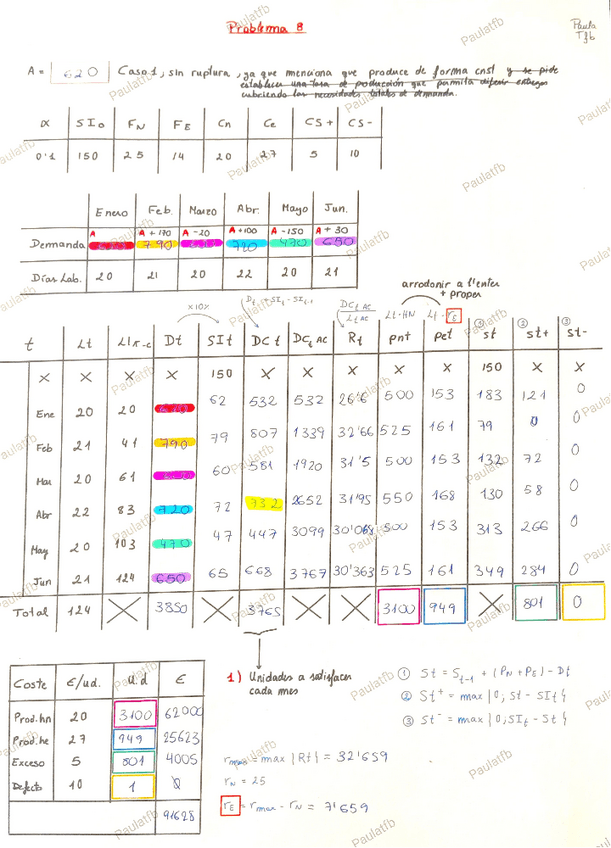 Problema 8
Paula
Tfb
A = 620 Caso 1, sin ruptura, ya que menciona que produce de forma cnst y se pide
establecer una tasa de producción que permita diferir entregas
cubriendo las necesidades totales de demanda.
α SI₀ FN FE Cn Ce CS+ CS-
0'1 150 25 14 20 27 5 10
Enero Feb. Marzo Abr. Mayo Jun.
A A +170 A -20 A +100 A -150 A + 30
Demanda 620 790 600 720 470 650
Días Lab. 20 21 20 22 20 21
arrodonir a l'enter
+ proper
x10% Dt + SIt - SIt-1 DCt AC / Lt AC Lt · HN Lt · rE ① ② ③
t Lt Dt SIt DCt DCt AC Rt pnt pet st st+ st-
X X X X 150 X X X X X 150 X X
Ene 20 20 620 62 532 532 26'6 500 153 183 121 0
Feb 21 41 790 79 807 1339 32'66 525 161 79 0 0
Mar 20 61 600 60 581 1920 31'5 500 153 132 72 0
Abr 22 83 720 72 732 2652 31'95 550 168 130 58 0
May 20 103 470 47 447 3099 30'068 500 153 313 266 0
Jun 21 124 650 65 668 3767 30'363 525 161 349 284 0
Total 124 X 3850 X 3765 X X 3100 949 X 801 0
Coste €/ud. u.d €
Prod.hn 20 3100 62000
Prod.he 27 949 25623
Exceso 5 801 4005
Defecto 10 1 0
91628
1) Unidades a satisfacer
cada mes
rmax = max {Rt} = 32'659
rN = 25
rE = rmax - rN = 7'659
① St = St-1 + (PN + PE) - Dt
② St+ = max {0, St - SIt}
③ St- = max {0, SIt - St}
Paulatfb